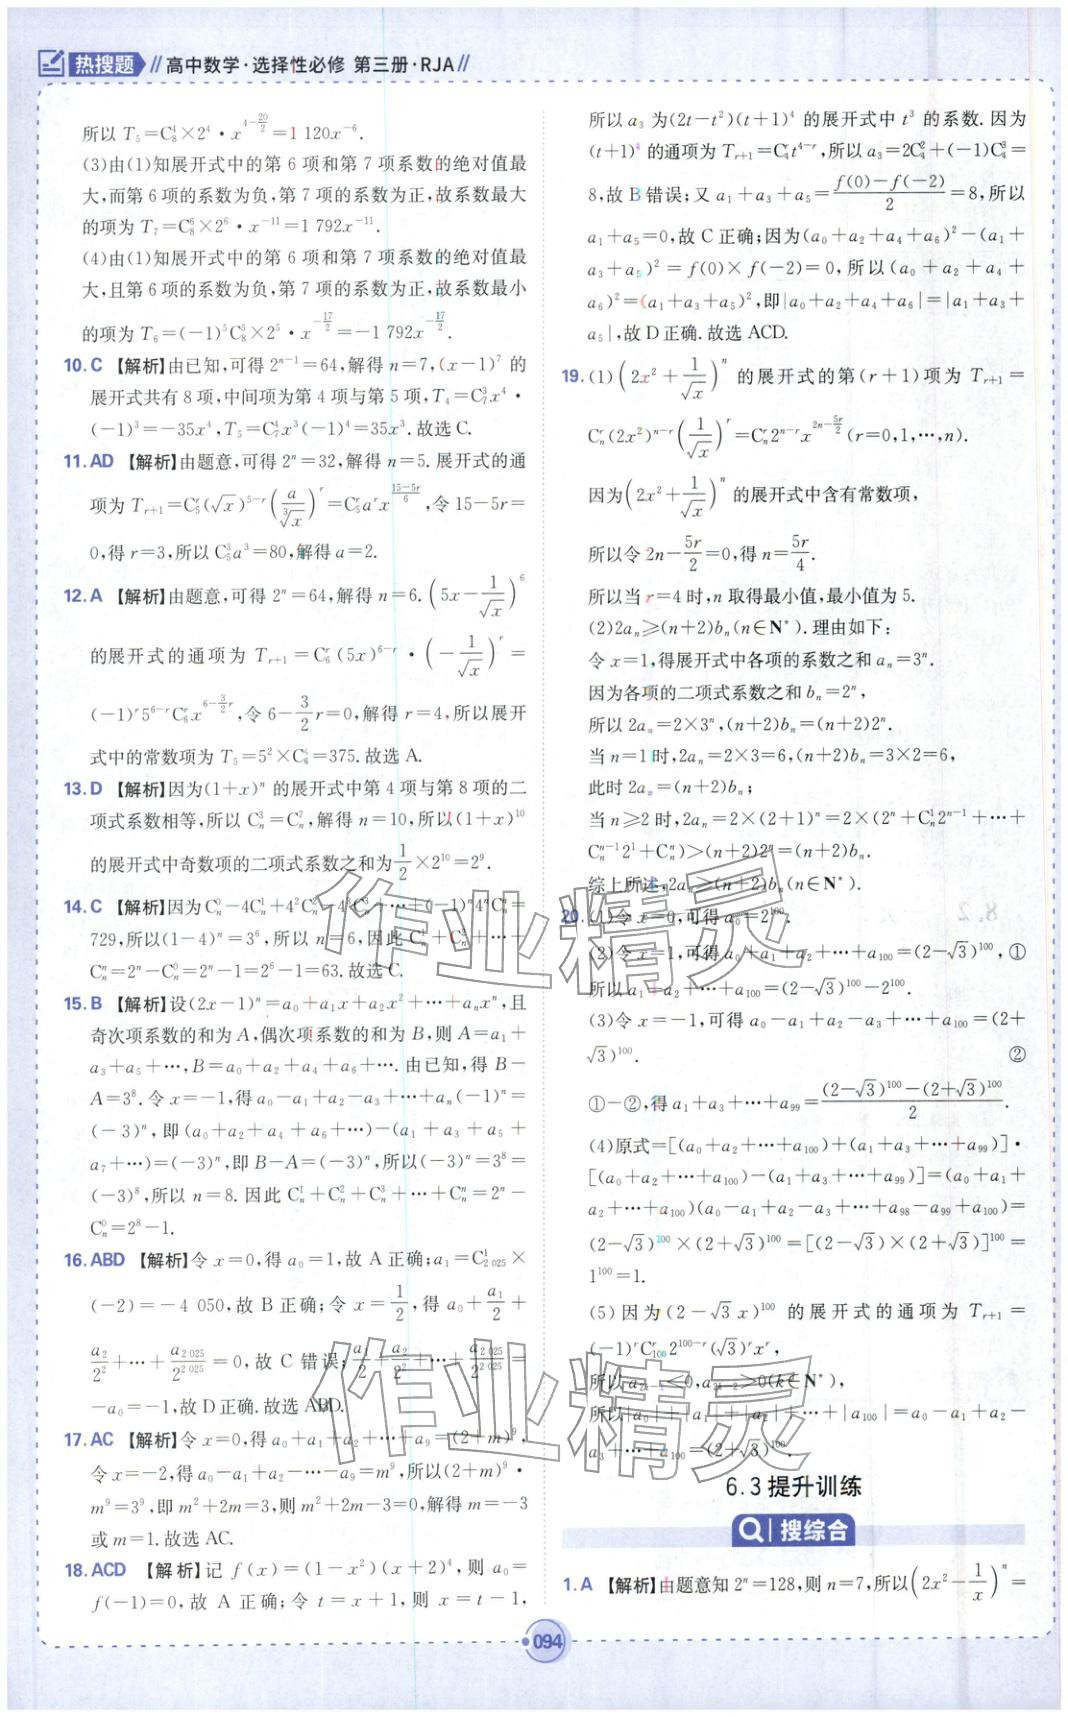 热搜题 // 高中数学·选择性必修 第三册·RJA //
所以 T₅=C₈⁴×2⁴·x^{4-20/2}=1 120x⁻⁶.
(3)由(1)知展开式中的第 6 项和第 7 项系数的绝对值最
大,而第 6 项的系数为负,第 7 项的系数为正,故系数最大
的项为 T₇=C₈⁶×2⁶·x⁻¹¹=1 792x⁻¹¹.
(4)由(1)知展开式中的第 6 项和第 7 项系数的绝对值最
大,且第 6 项的系数为负,第 7 项的系数为正,故系数最小
的项为 T₆=(-1)⁵C₈⁵×2⁵·x^{-17/2}=-1 792x^{-17/2}.
10. C 【解析】由已知,可得 2ⁿ⁻¹=64,解得 n=7,(x-1)⁷ 的
展开式共有 8 项,中间项为第 4 项与第 5 项,T₄=C₇³x⁴·
(-1)³=-35x⁴,T₅=C₇⁴x³(-1)⁴=35x³.故选 C.
11. AD 【解析】由题意,可得 2ⁿ=32,解得 n=5.展开式的通
项为 T_{r+1}=C₅ʳ(√x)^{5-r}(a/∛x)ʳ=C₅ʳaʳx^{(15-5r)/6},令 15-5r=
0,得 r=3,所以 C₅³a³=80,解得 a=2.
12. A 【解析】由题意,可得 2ⁿ=64,解得 n=6.(5x-1/√x)⁶
的展开式的通项为 T_{r+1}=C₆ʳ(5x)^{6-r}·(-1/√x)ʳ=
(-1)ʳ5^{6-r}C₆ʳx^{6-3/2r},令 6-3/2r=0,解得 r=4,所以展开
式中的常数项为 T₅=5²×C₆⁴=375.故选 A.
13. D 【解析】因为(1+x)ⁿ 的展开式中第 4 项与第 8 项的二
项式系数相等,所以 Cₙ³=Cₙ⁷,解得 n=10,所以(1+x)¹⁰
的展开式中奇数项的二项式系数之和为 1/2×2¹⁰=2⁹.
14. C 【解析】因为 Cₙ⁰-4Cₙ¹+4²Cₙ²-4³Cₙ³+…+(-1)ⁿ4ⁿCₙⁿ=
729,所以(1-4)ⁿ=3⁶,所以 n=6,因此 Cₙ¹+Cₙ²+…+
Cₙⁿ=2ⁿ-Cₙ⁰=2ⁿ-1=2⁶-1=63.故选 C.
15. B 【解析】设(2x-1)ⁿ=a₀+a₁x+a₂x²+…+aₙxⁿ,且
奇次项系数的和为 A,偶次项系数的和为 B,则 A=a₁+
a₃+a₅+…,B=a₀+a₂+a₄+a₆+….由已知,得 B-
A=3⁸.令 x=-1,得 a₀-a₁+a₂-a₃+…+aₙ(-1)ⁿ=
(-3)ⁿ,即(a₀+a₂+a₄+a₆+…)-(a₁+a₃+a₅+
a₇+…)=(-3)ⁿ,即 B-A=(-3)ⁿ,所以(-3)ⁿ=3⁸=
(-3)⁸,所以 n=8.因此 Cₙ¹+Cₙ²+Cₙ³+…+Cₙⁿ=2ⁿ-
Cₙ⁰=2⁸-1.
16. ABD 【解析】令 x=0,得 a₀=1,故 A 正确;a₁=C¹₂ ₀₂₅×
(-2)=-4 050,故 B 正确;令 x=1/2,得 a₀+a₁/2+
a₂/2²+…+a₂ ₀₂₅/2² ⁰²⁵=0,故 C 错误;a₁/2+a₂/2²+…+a₂ ₀₂₅/2² ⁰²⁵=
-a₀=-1,故 D 正确.故选 ABD.
17. AC 【解析】令 x=0,得 a₀+a₁+a₂+…+a₉=(2+m)⁹,
令 x=-2,得 a₀-a₁+a₂-…-a₉=m⁹,所以(2+m)⁹·
m⁹=3⁹,即 m²+2m=3,则 m²+2m-3=0,解得 m=-3
或 m=1.故选 AC.
18. ACD 【解析】记 f(x)=(1-x²)(x+2)⁴,则 a₀=
f(-1)=0,故 A 正确;令 t=x+1,则 x=t-1,
所以 a₃ 为(2t-t²)(t+1)⁴ 的展开式中 t³ 的系数.因为
(t+1)⁴ 的通项为 T_{r+1}=C₄ʳt^{4-r},所以 a₃=2C₄²+(-1)C₄³=
8,故 B 错误;又 a₁+a₃+a₅=(f(0)-f(-2))/2=8,所以
a₁+a₅=0,故 C 正确;因为(a₀+a₂+a₄+a₆)²-(a₁+
a₃+a₅)²=f(0)×f(-2)=0,所以(a₀+a₂+a₄+
a₆)²=(a₁+a₃+a₅)²,即|a₀+a₂+a₄+a₆|=|a₁+a₃+
a₅|,故 D 正确.故选 ACD.
19. (1)(2x²+1/√x)ⁿ 的展开式的第(r+1)项为 T_{r+1}=
Cₙʳ(2x²)ⁿ⁻ʳ(1/√x)ʳ=Cₙʳ2ⁿ⁻ʳx^{2n-5r/2}(r=0,1,…,n).
因为(2x²+1/√x)ⁿ 的展开式中含有常数项,
所以令 2n-5r/2=0,得 n=5r/4.
所以当 r=4 时,n 取得最小值,最小值为 5.
(2)2aₙ≥(n+2)bₙ(n∈N*).理由如下:
令 x=1,得展开式中各项的系数之和 aₙ=3ⁿ.
因为各项的二项式系数之和 bₙ=2ⁿ,
所以 2aₙ=2×3ⁿ,(n+2)bₙ=(n+2)2ⁿ.
当 n=1 时,2aₙ=2×3=6,(n+2)bₙ=3×2=6,
此时 2aₙ=(n+2)bₙ;
当 n≥2 时,2aₙ=2×(2+1)ⁿ=2×(2ⁿ+Cₙ¹2ⁿ⁻¹+…+
Cₙⁿ⁻¹2¹+Cₙⁿ)>(n+2)2ⁿ=(n+2)bₙ.
综上所述,2aₙ≥(n+2)bₙ(n∈N*).
20. (1)令 x=0,可得 a₀=2¹⁰⁰.
(2)令 x=1,可得 a₀+a₁+a₂+…+a₁₀₀=(2-√3)¹⁰⁰,①
所以 a₁+a₂+…+a₁₀₀=(2-√3)¹⁰⁰-2¹⁰⁰.
(3)令 x=-1,可得 a₀-a₁+a₂-a₃+…+a₁₀₀=(2+
√3)¹⁰⁰. ②
①-②,得 a₁+a₃+…+a₉₉=((2-√3)¹⁰⁰-(2+√3)¹⁰⁰)/2.
(4)原式=[(a₀+a₂+…+a₁₀₀)+(a₁+a₃+…+a₉₉)]·
[(a₀+a₂+…+a₁₀₀)-(a₁+a₃+…+a₉₉)]=(a₀+a₁+
a₂+…+a₁₀₀)(a₀-a₁+a₂-a₃+…+a₉₈-a₉₉+a₁₀₀)=
(2-√3)¹⁰⁰×(2+√3)¹⁰⁰=[(2-√3)×(2+√3)]¹⁰⁰=
1¹⁰⁰=1.
(5)因为(2-√3x)¹⁰⁰ 的展开式的通项为 T_{r+1}=
(-1)ʳC₁₀₀ʳ2¹⁰⁰⁻ʳ(√3)ʳxʳ,
所以 a_{2k-1}<0,a_{2k-2}>0(k∈N*),
所以|a₀|+|a₁|+|a₂|+…+|a₁₀₀|=a₀-a₁+a₂-
a₃+…+a₁₀₀=(2+√3)¹⁰⁰.
6.3 提升训练
搜综合
1. A 【解析】由题意知 2ⁿ=128,则 n=7,所以(2x²-1/x)ⁿ=
094
作业精灵
作业精灵